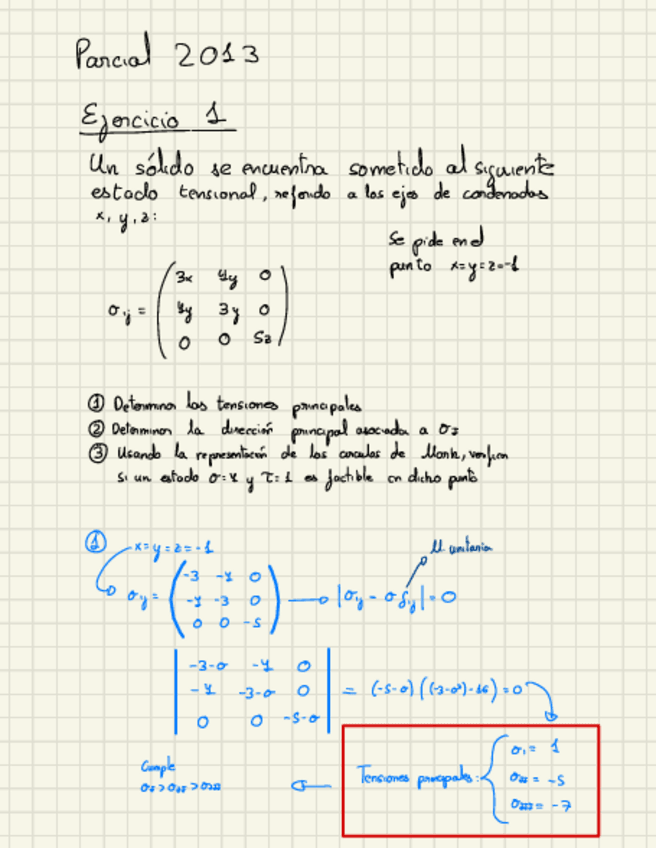 Parcial 2013
Ejercicio 1
Un sólido se encuentra sometido al siguiente
estado tensional, referido a los ejes de cordenadas
x, y, z:
Se pide en el
punto x=y=z=-1
σij = ( 3x 4y 0
4y 3y 0
0 0 5z )
① Determinar las tensiones principales
② Determinar la dirección principal asociada a σI
③ Usando la representación de los circulos de Mohr, verificar
si un estado σ=4 y τ=1 es factible en dicho punto
①
x=y=z=-1
M unitaria
σij = ( -3 -4 0
-4 -3 0
0 0 -5 ) → |σij - σ δij| = 0
| -3-σ -4 0
-4 -3-σ 0
0 0 -5-σ | = (-5-σ)((-3-σ)²-16)=0
Cumple
σI > σII > σIII
Tensiones principales: { σI = 1
σII = -5
σIII = -7